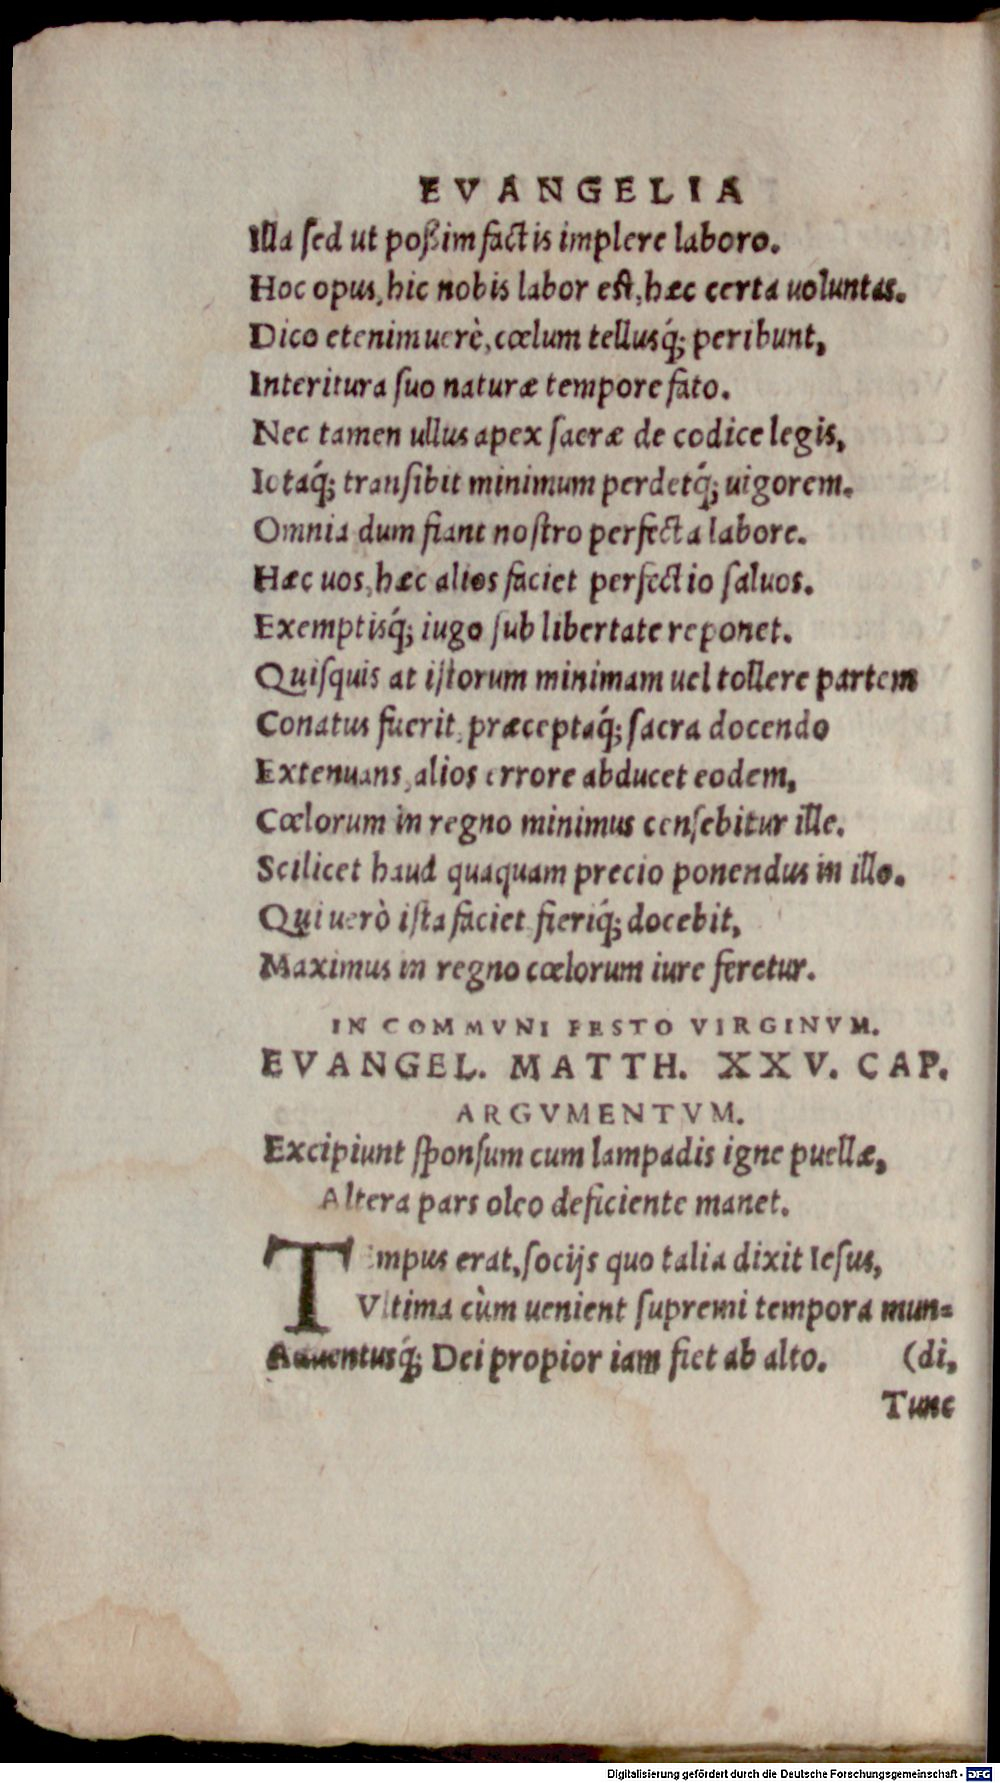 EVANGELIA
Illa ſed ut poßim factis implere laboro.
Hoc opus, hic nobis labor eſt, hæc certa uoluntas.
Dico etenim uerè, cœlum tellusq́; peribunt,
Interitura ſuo naturæ tempore fato.
Nec tamen ullus apex ſacræ de codice legis,
Iotaq́; tranſibit minimum perdetq́; uigorem.
Omnia dum fiant noſtro perfecta labore.
Hæc uos, hæc alios faciet perfectio ſaluos.
Exemptisq́; iugo ſub libertate reponet.
Quiſquis at iſtorum minimam uel tollere partem
Conatus fuerit, præceptaq́; ſacra docendo
Extenuans, alios errore abducet eodem,
Cœlorum in regno minimus cenſebitur ille.
Scilicet haud quaquam precio ponendus in illo.
Qui uerò iſta faciet fieriq́; docebit,
Maximus in regno cœlorum iure feretur.
IN COMMVNI FESTO VIRGINVM.
EVANGEL. MATTH. XXV. CAP.
ARGVMENTVM.
Excipiunt ſponſum cum lampadis igne puellæ,
Altera pars oleo deficiente manet.
Tempus erat, ſocijs quo talia dixit Ieſus,
Vltima cùm uenient ſupremi tempora mun=
Aduentusq́; Dei propior iam fiet ab alto. (di,
Tunc
Digitalisierung gefördert durch die Deutsche Forschungsgemeinschaft - DFG